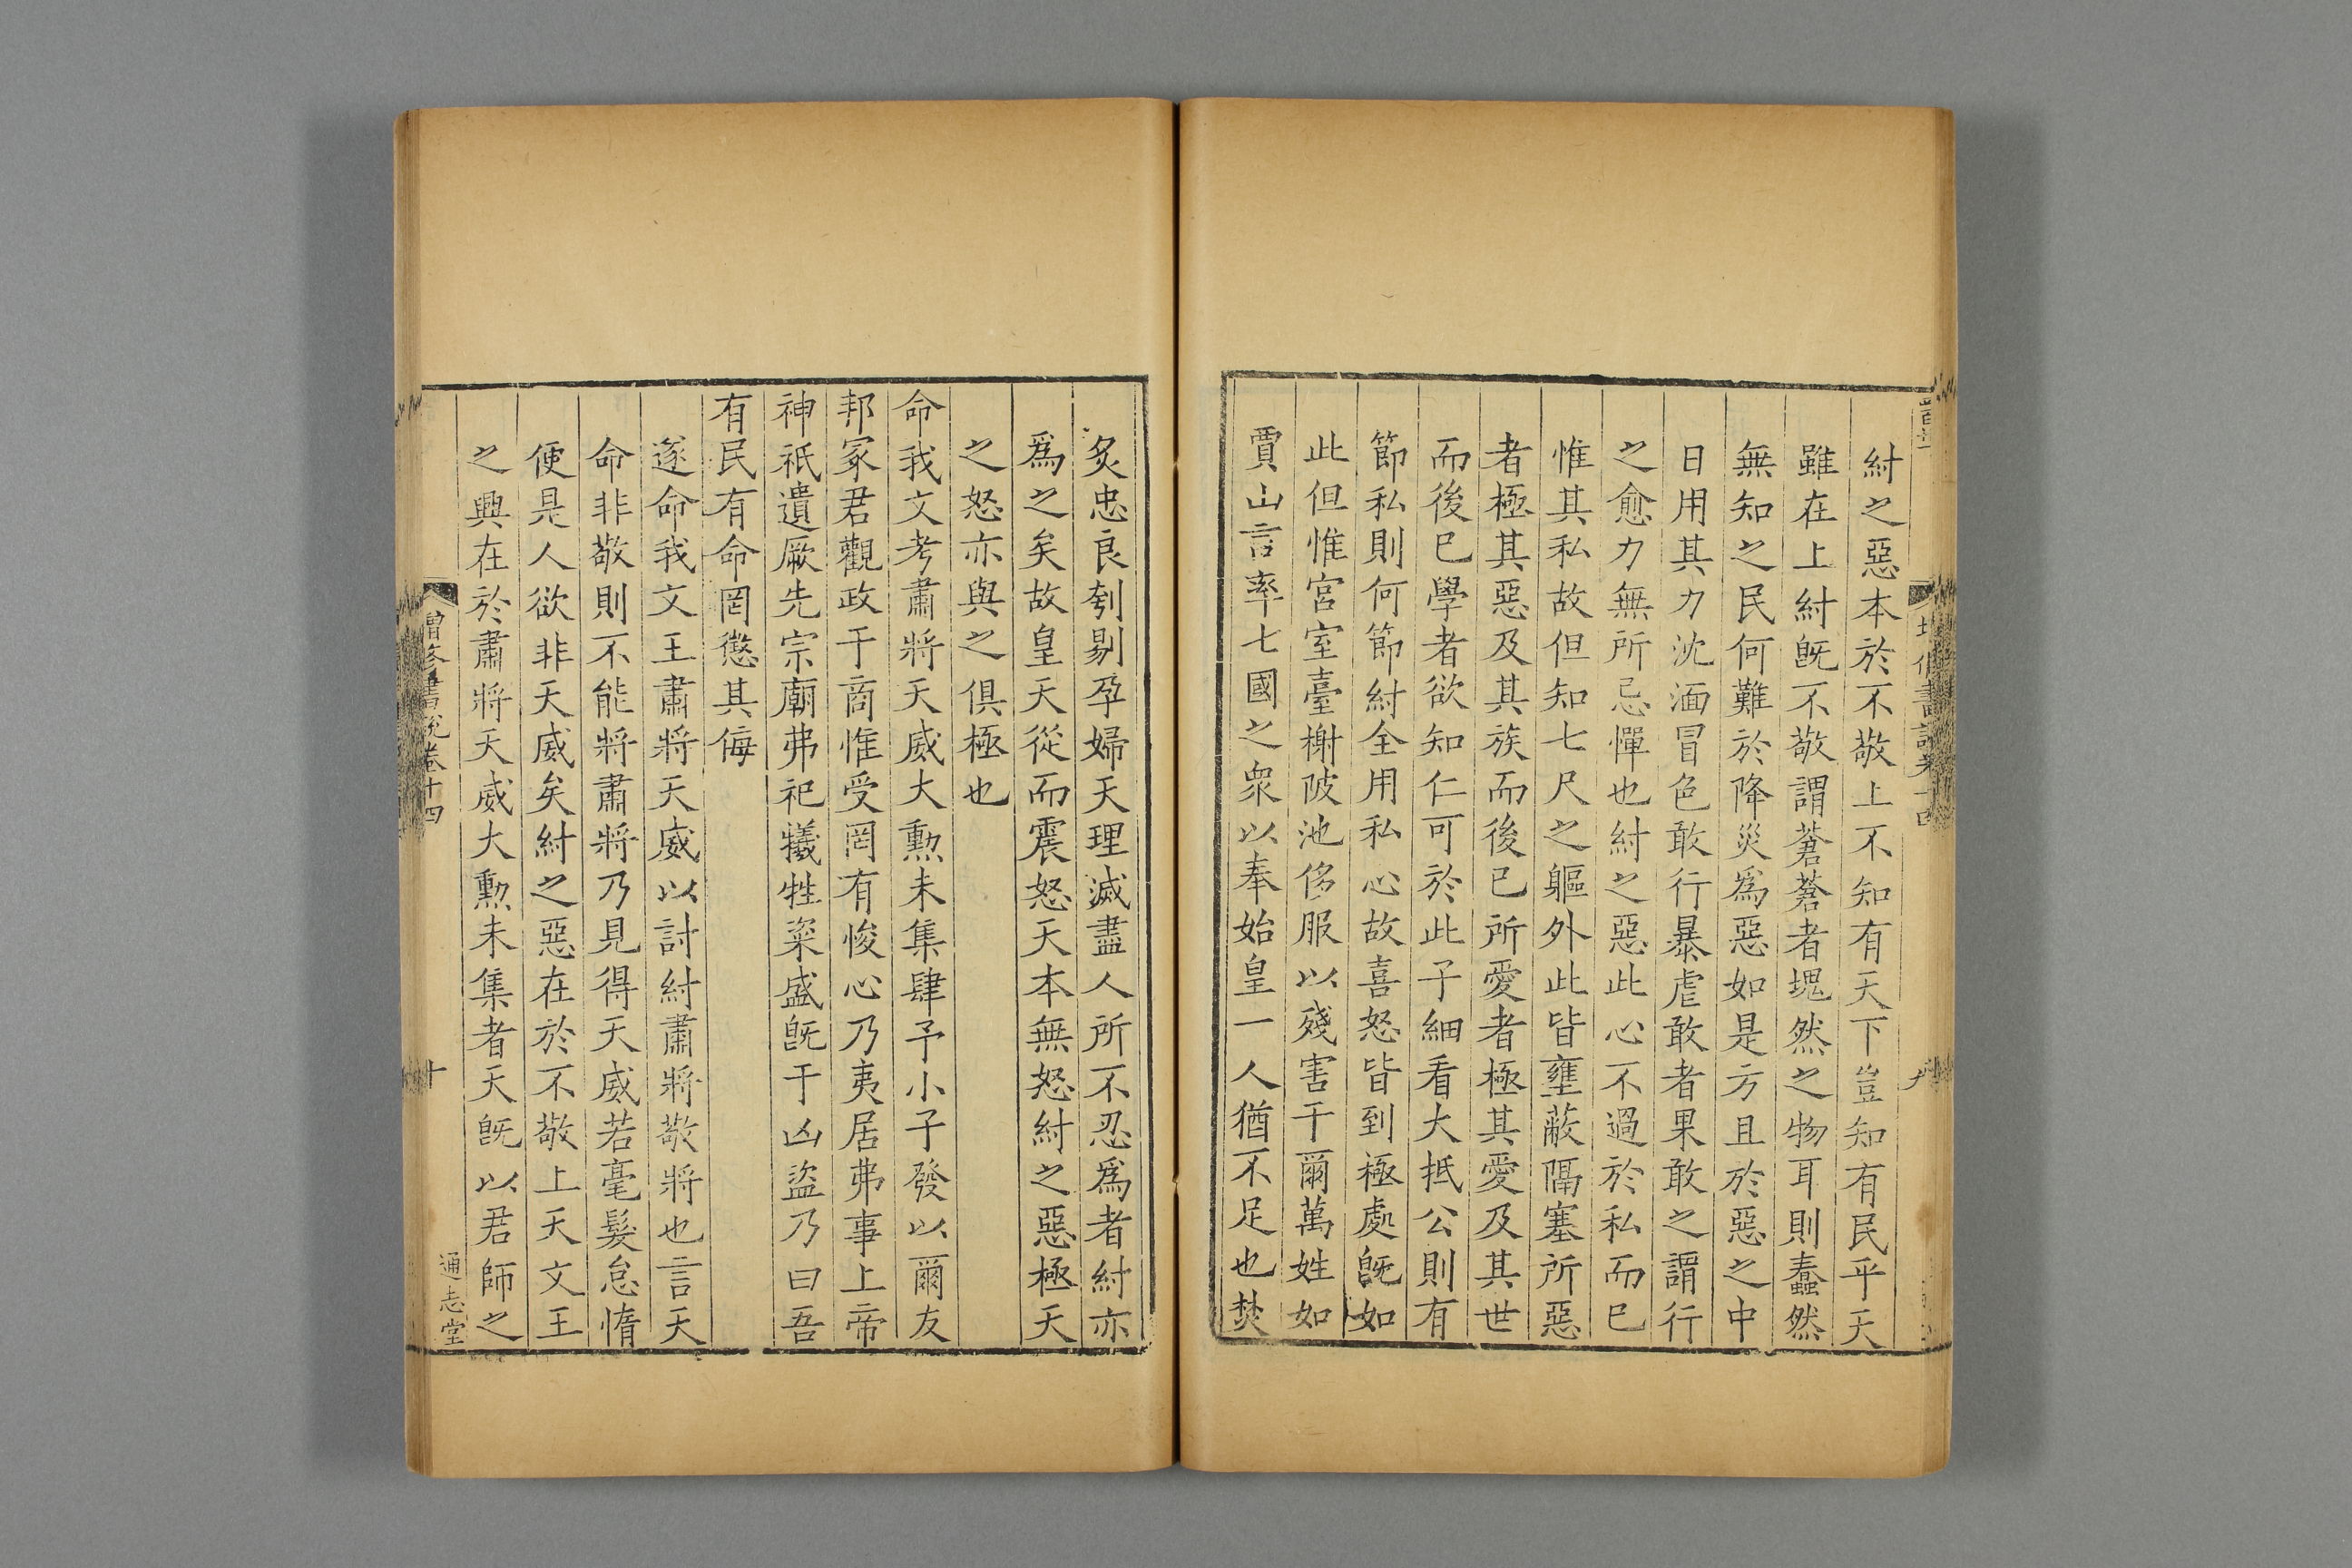 紂之惡本於不敬上不知有天下豈知有民乎天
雖在上紂旣不敬謂蒼蒼者塊然之物耳則蠢然
無知之民何難於降災爲惡如是方且於惡之中
日用其力沈湎冒色敢行暴虐敢者果敢之謂行
之愈力無所忌憚也紂之惡此心不過於私而已
惟其私故但知七尺之軀外此皆壅蔽隔塞所惡
者極其惡及其族而後已所愛者極其愛及其世
而後已學者欲知仁可於此子細看大抵公則有
節私則何節紂全用私心故喜怒皆到極處旣如
此但惟宮室臺榭陂池侈服以殘害于爾萬姓如
賈山言率七國之衆以奉始皇一人猶不足也焚
炙忠良刳剔孕婦天理滅盡人所不忍爲者紂亦
爲之矣故皇天從而震怒天本無怒紂之惡極天
之怒亦與之俱極也
命我文考肅將天威大勲未集肆予小子發以爾友
邦冢君觀政于商惟受罔有悛心乃夷居弗事上帝
神祇遺厥先宗廟弗祀犧牲粢盛旣于凶盜乃曰吾
有民有命罔懲其侮
遂命我文王肅將天威以討紂肅將敬將也言天
命非敬則不能將肅將乃見得天威若毫髮怠惰
便是人欲非天威矣紂之惡在於不敬上天文王
之興在於肅將天威大勲未集者天旣以君師之
增修書說卷十四
十
通志堂